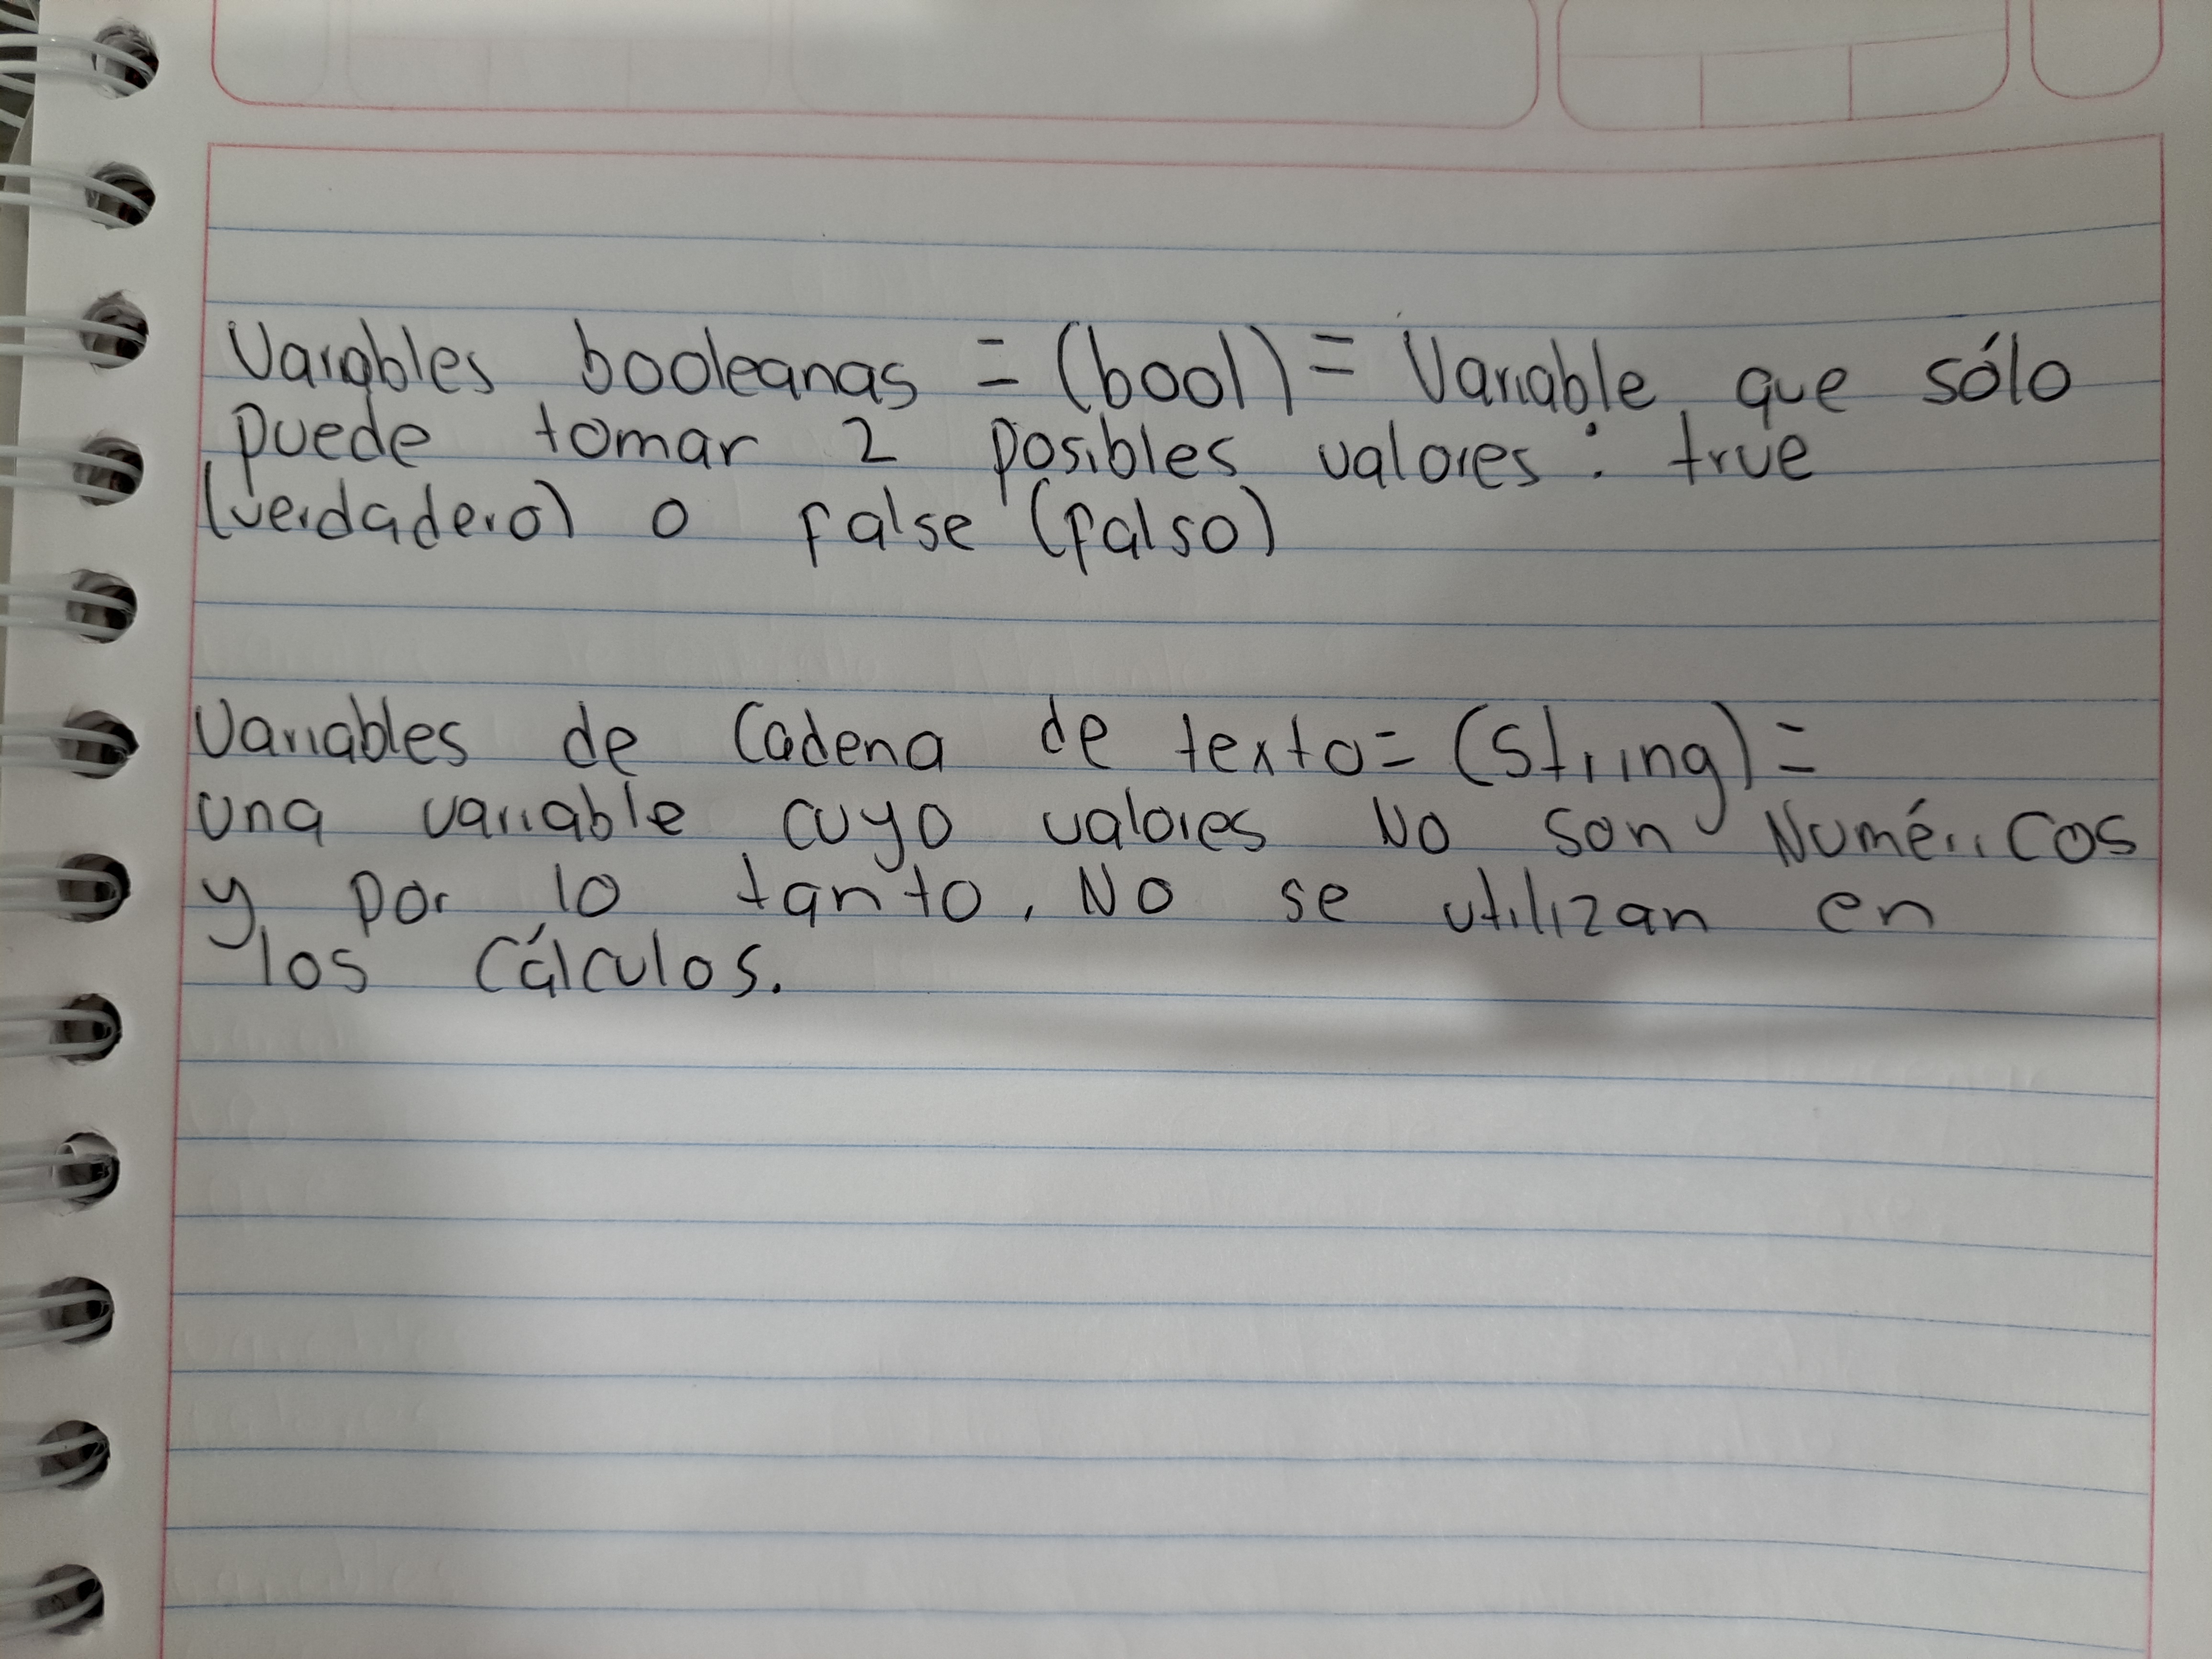 Variables booleanas = (bool) = Variable que sólo
puede tomar 2 posibles valores: true
(verdadero) o false (falso)
Variables de Cadena de texto= (String) =
una variable cuyo valores No son Numéricos
y por lo tanto, No se utilizan en
los Cálculos.